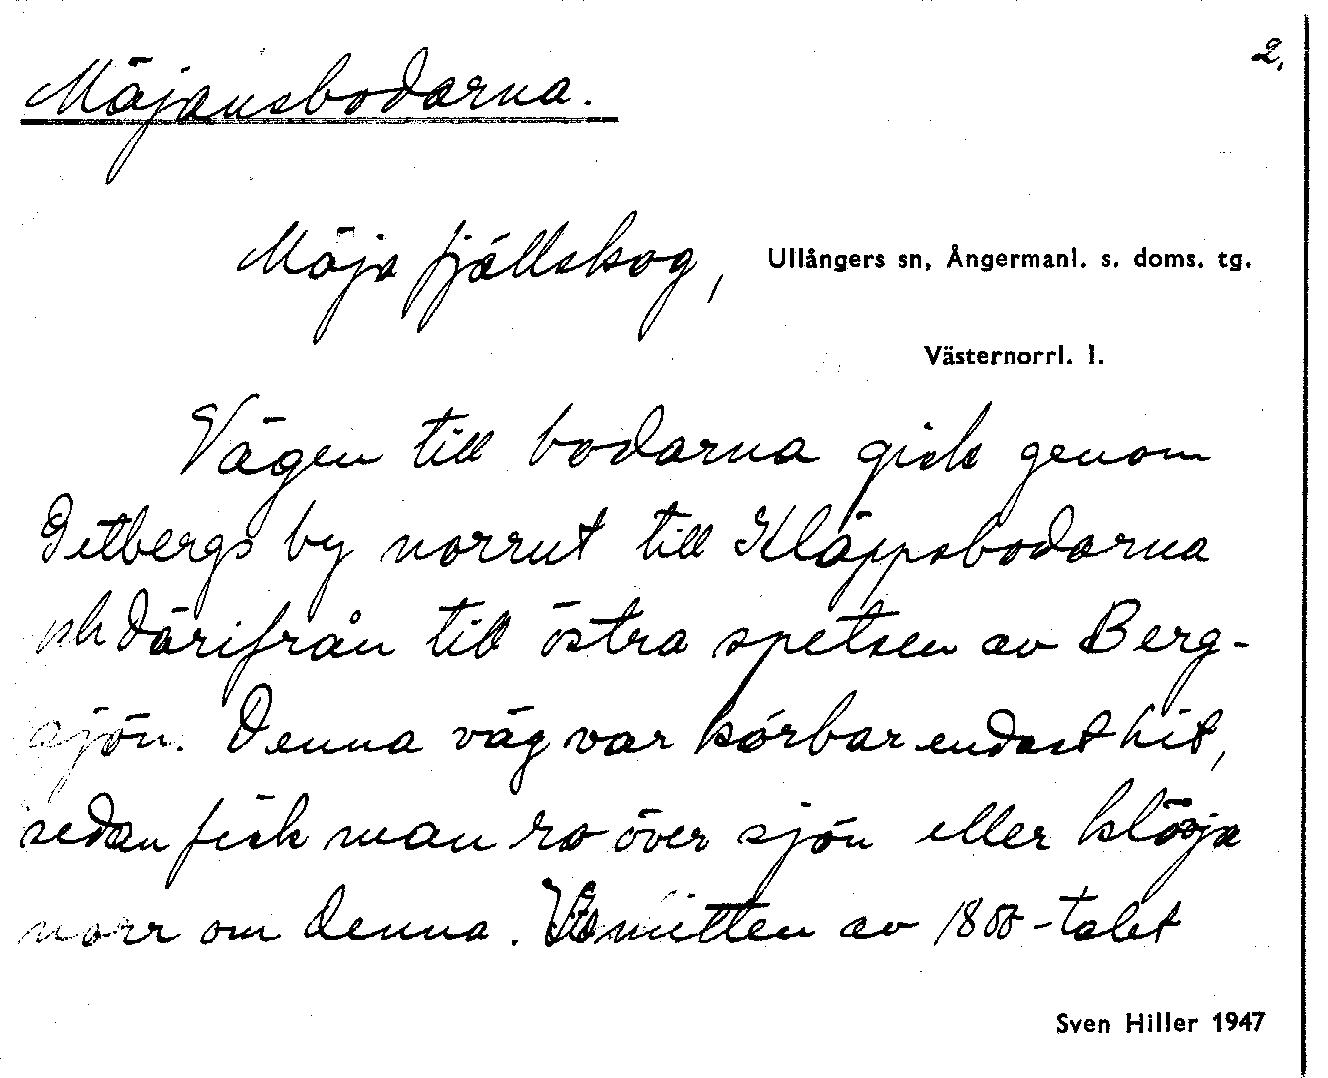 2.
Mäjansbodarna.
Mäja fjällskog, Ullångers sn, Ångermanl. s. doms. tg.
Västernorrl. l.
Vägen till bodarna gick genom
Getbergs by norrut till Kläppsbodarna
och därifrån till östra spetsen av Berg-
sjön. Denna väg var körbar endast hit,
sedan fick man ro över sjön eller klövja
norr om denna. mitten av 1800-talet
Sven Hiller 1947